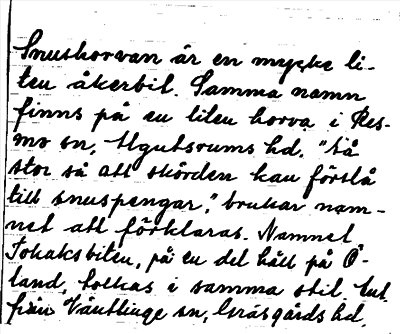 Snushorvan är en mycke li-
ten åkerbit. Samma namn
finns på en liten horva i Res-
mo sn, Algutsrums hd. "Så
stor så att skörden kan förslå
till snuspengar," brukar nam-
net att förklaras. Namnet
Tobaksbiten, på en del håll på Ö-
land, tolkas i samma stil. Ant.
från Väntlinge sn, Gräsgårds hd.